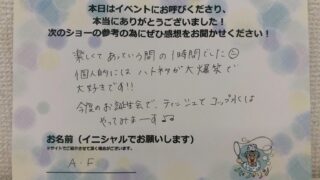 本日はイベントにお呼びくださり、
本当にありがとうございました！
次のショーの参考の為にぜひ感想をお聞かせください！
楽しくてあっという間の1時間でした
個人的には ハトネタが大爆笑で
大好きです!!
今度のお誕生会で、ティッシュでコップ水は
やってみまーす♪♪
お名前（イニシャルでお願いします）
※サイトでご紹介させて頂く場合がございます。
A.F